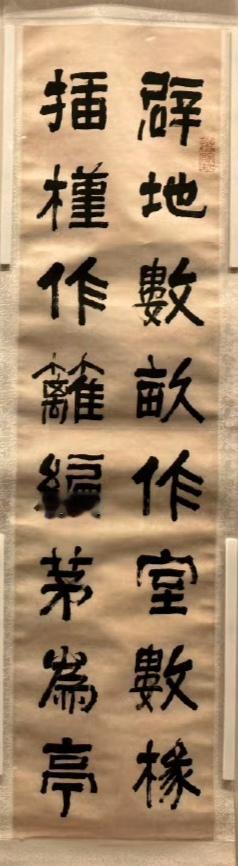 辟地數畝作室數椽
插槿作籬編茅為亭